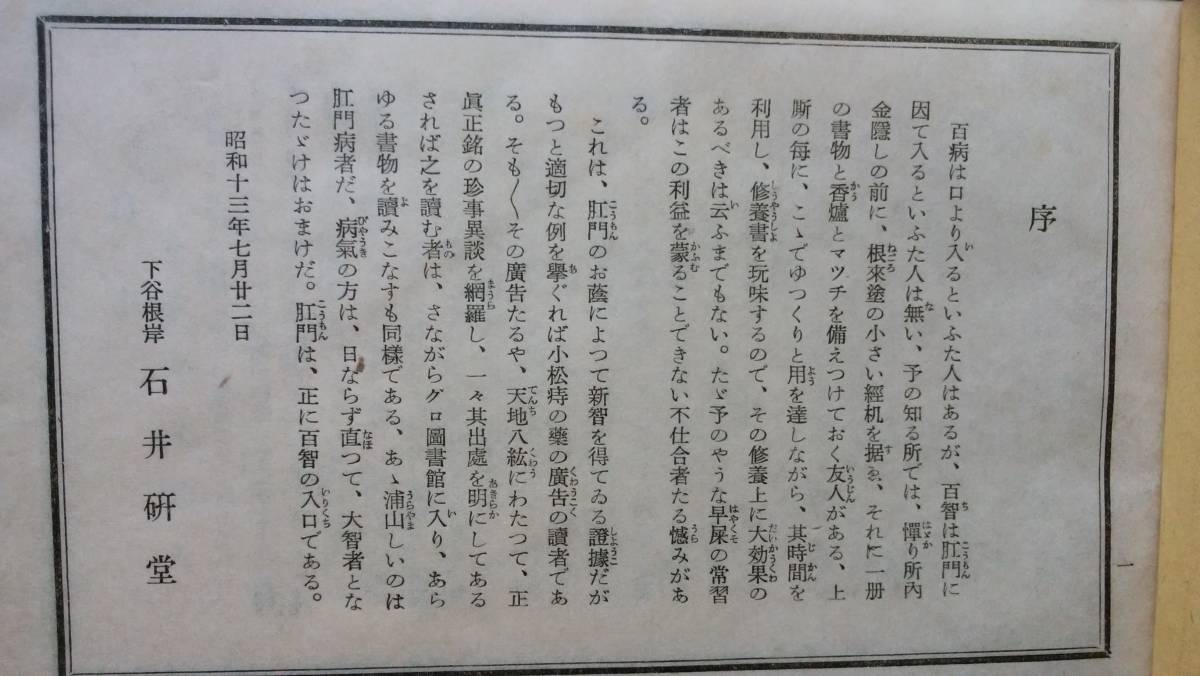 序
百病は口より入るといふた人はあるが、百智は肛門に
因て入るといふた人は無い、予の知る所では、憚り所內
金隱しの前に、根來塗の小さい經机を据ゑ、それに一册
の書物と香爐とマツチを備えつけておく友人がある、上
厠の每に、こゝでゆつくりと用を達しながら、其時間を
利用し、修養書を玩味するので、その修養上に大効果の
あるべきは云ふまでもない。たゞ予のやうな早屎の常習
者はこの利益を蒙ることできない不仕合者たる憾みがあ
る。
これは、肛門のお蔭によつて新智を得てゐる證據だが
もつと適切な例を擧ぐれば小松痔の藥の廣吿の讀者であ
る。そも〱その廣吿たるや、天地八紘にわたつて、正
眞正銘の珍事異談を網羅し、一々其出處を明にしてある
されば之を讀む者は、さながらグロ圖書館に入り、あら
ゆる書物を讀みこなすも同樣である、あゝ浦山しいのは
肛門病者だ、病氣の方は、日ならず直つて、大智者とな
つたゞけはおまけだ。肛門は、正に百智の入口である。
昭和十三年七月廿二日
下谷根岸 石井硏堂
一